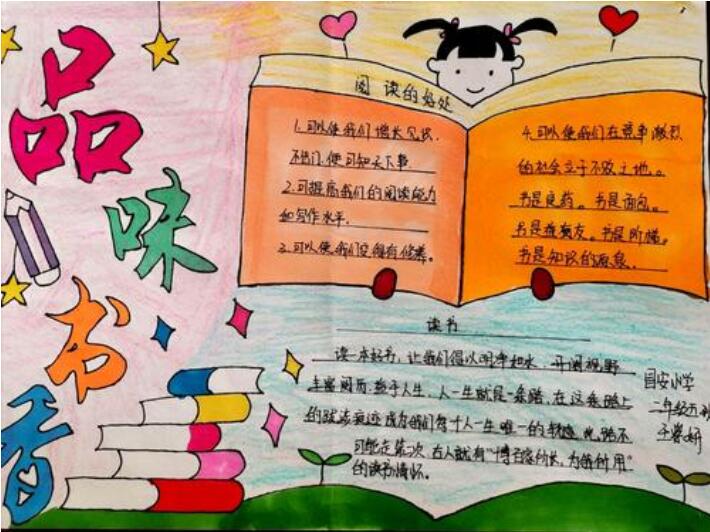 品
味
书
香
阅读的好处
1.可以使我们增长见识.
不出门,便可知天下事
2.可提高我们的阅读能力
和写作水平.
3.可以使我们变得有修养。
4.可以使我们在竞争激烈
的社会立于不败之地。
书是良药。书是面包。
书是 友。书是阶梯。
书是知识的源泉.
读书
读一本好书,让我们得以明净如水,开阔视野
丰富阅历,益于人生,人一生就是一条路,在这条路上
的 成为我们每个人一生唯一的轨迹,此路不
可能走第二次,古人就有“博百家所长,为我所用”
的读书情怀。
小学
二年级五班